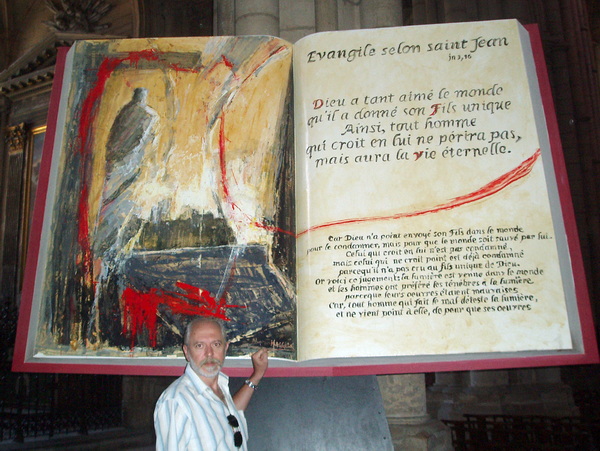 Evangile selon saint Jean
jn 3,16
Dieu a tant aimé le monde
qu'il a donné son Fils unique
Ainsi, tout homme
qui croit en lui ne périra pas,
mais aura la vie éternelle.
Car Dieu n'a point envoyé son Fils dans le monde
pour le condamner, mais pour que le monde soit sauvé par lui.
Celui qui croit en lui n'est pas condamné,
mais celui qui ne croit point est déjà condamné
parcequ'il n'a pas cru au fils unique de Dieu.
Or voici ce jugement: la lumière est venue dans le monde
et les hommes ont préféré les ténèbres à la lumière,
parceque leurs oeuvres étaient mauvaises
Car, tout homme qui fait le mal déteste la lumière,
et ne vient point à elle, de peur que ses oeuvres